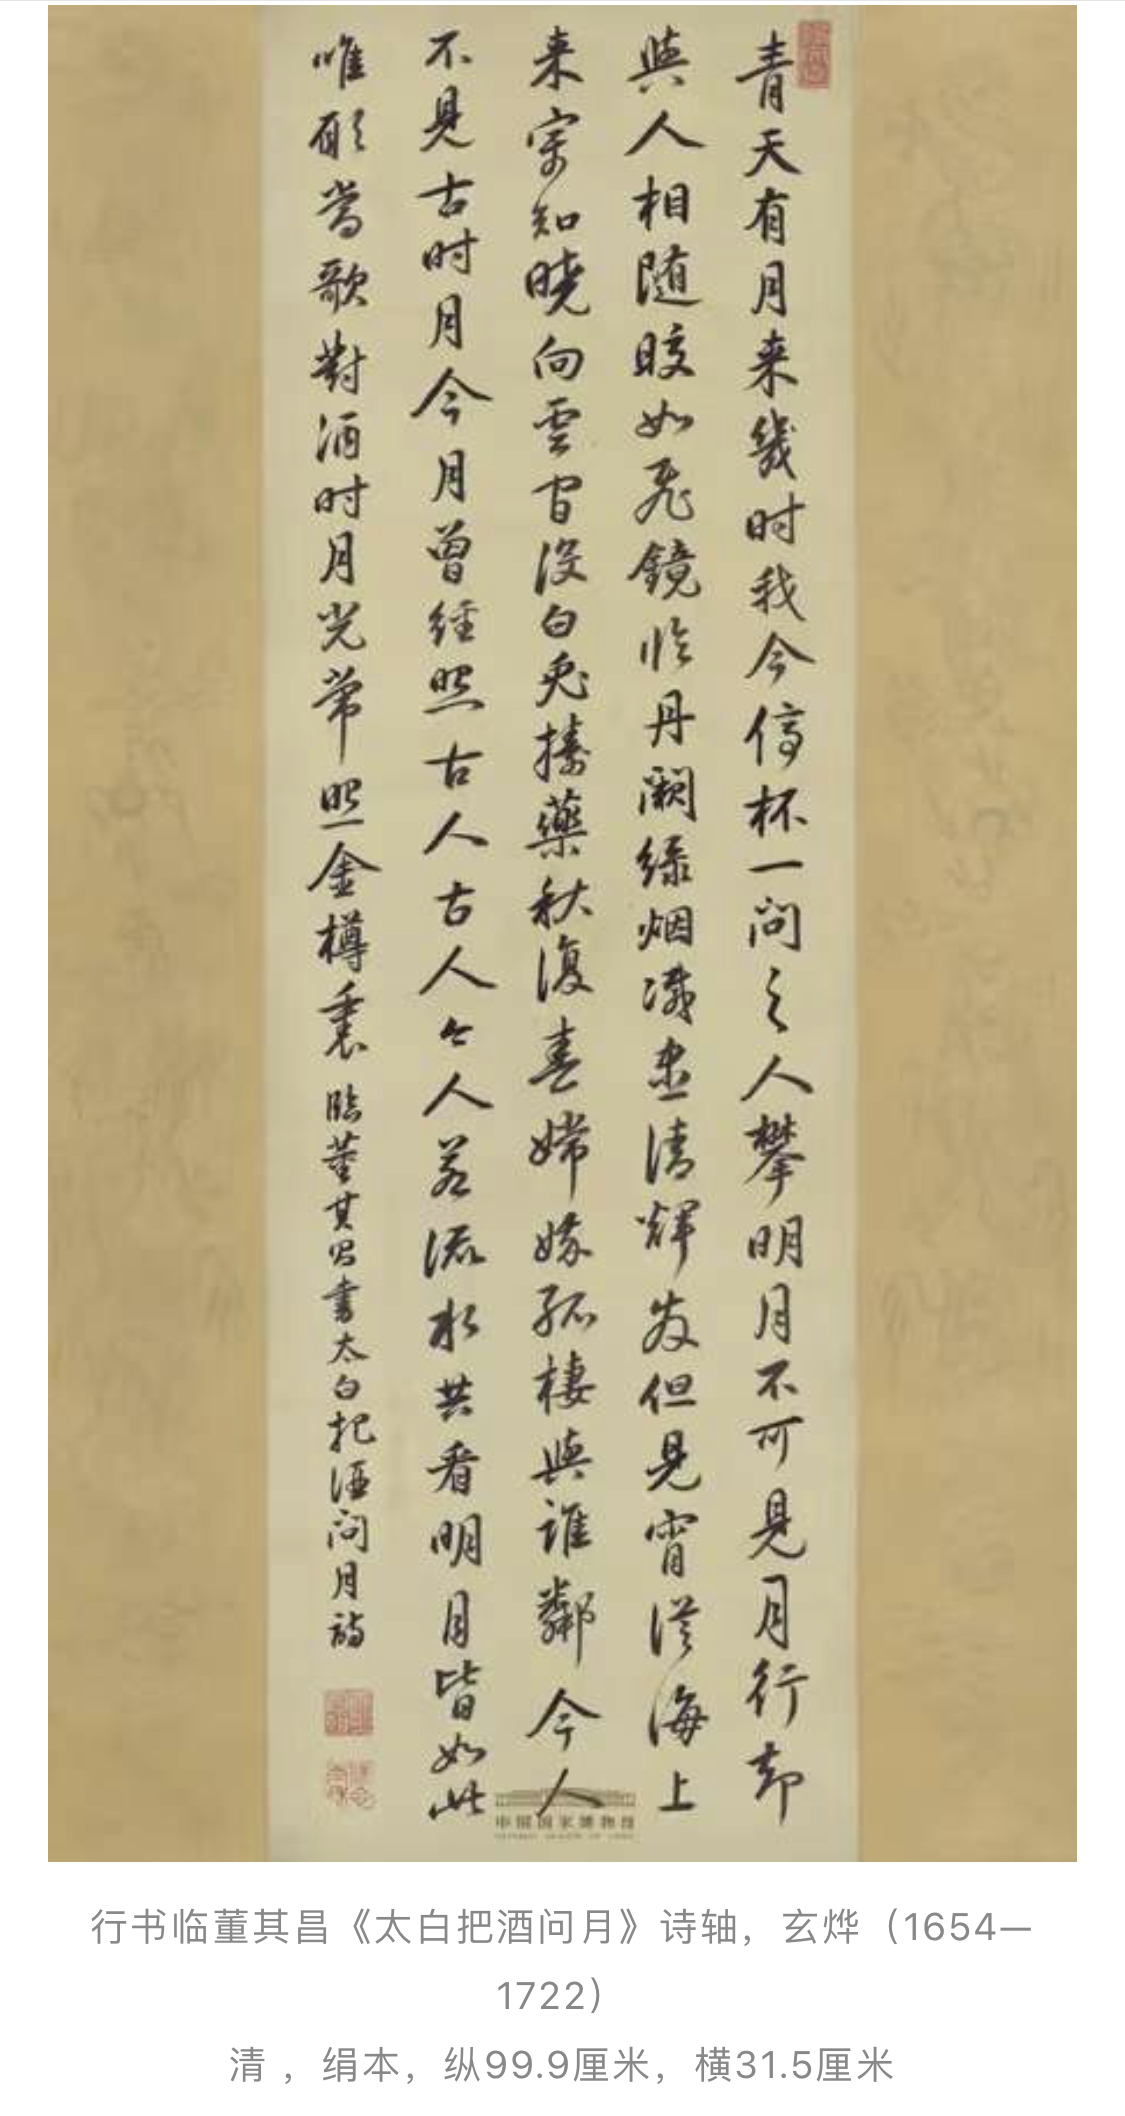 青天有月来幾时我今停杯一问之人攀明月不可見月行却
與人相随皎如飛鏡临丹阙绿烟滅尽清輝发但見宵従海上
来寧知曉向雲间没白兔搗藥秋復春嫦娥孤棲與誰鄰今人
不見古时月今月曾经照古人古人今人若流水共看明月皆如此
唯願當歌對酒时月光常照金樽裏 臨董其昌書太白把酒问月詩
中国国家博物馆
行书临董其昌《太白把酒问月》诗轴，玄烨（1654—
1722）
清 ，绢本，纵99.9厘米，横31.5厘米